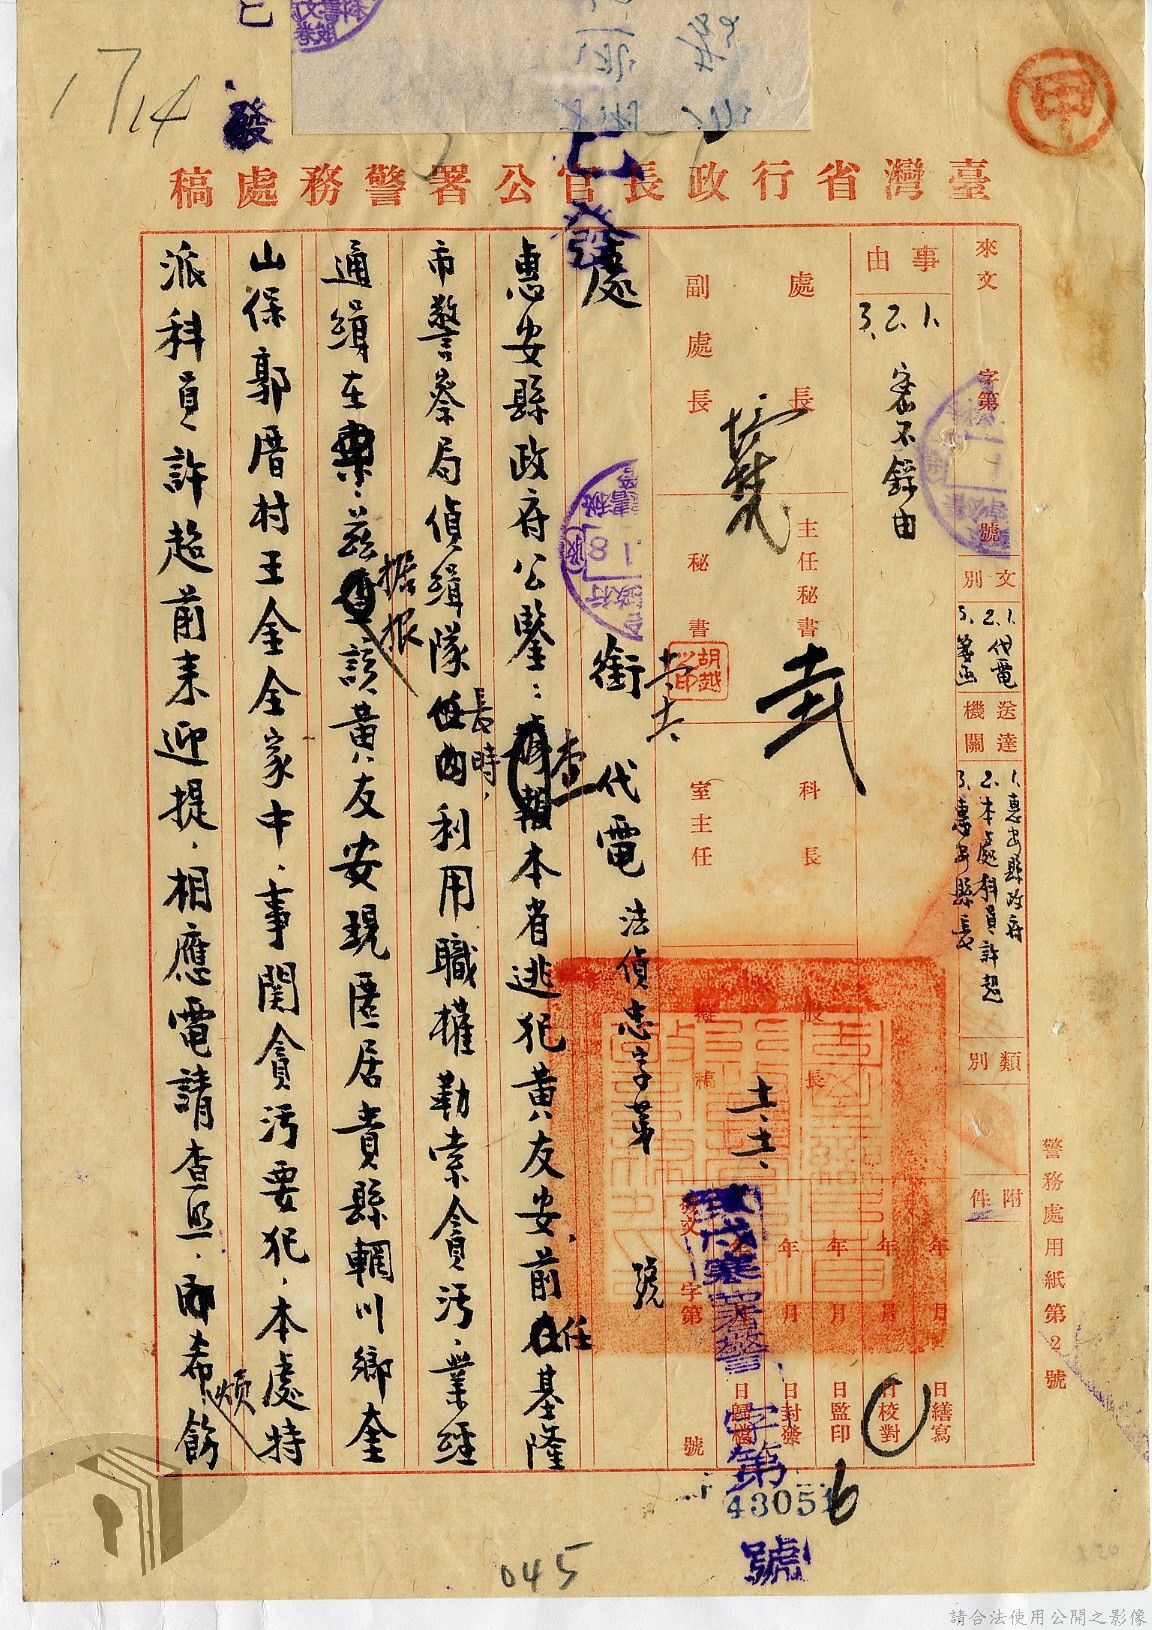 甲
1714
已發
臺灣省行政長官公署警務處稿
來文 字第 號
文別
1.2.代電
3.箋函
送達機關
1.惠安縣政府
2.本處科員許超
3.惠安縣長
類別
附件
事由
1.2.3. 密不錄由
處長
副處長
主任秘書
秘書
胡越之印
科長
室主任
股長
擬稿
年 月 日繕寫
年 月 日校對
年 月 日監印
年 月 日封發
年 月 日歸檔
收文 字第 號
署警 字第 43051 號
警務處用紙第2號
處銜代電 法偵忠字第 號
惠安縣政府公鑒:查本省逃犯黃友安,前任基隆
市警察局偵緝隊長時,利用職權勒索貪污,業經
通緝在案,茲據報該黃友安現匿居貴縣輞川鄉奎
山保郭厝村王金全家中,事關貪污要犯,本處特
派科員許超前來迎提,相應電請查照,煩希飭
045
請合法使用公開之影像